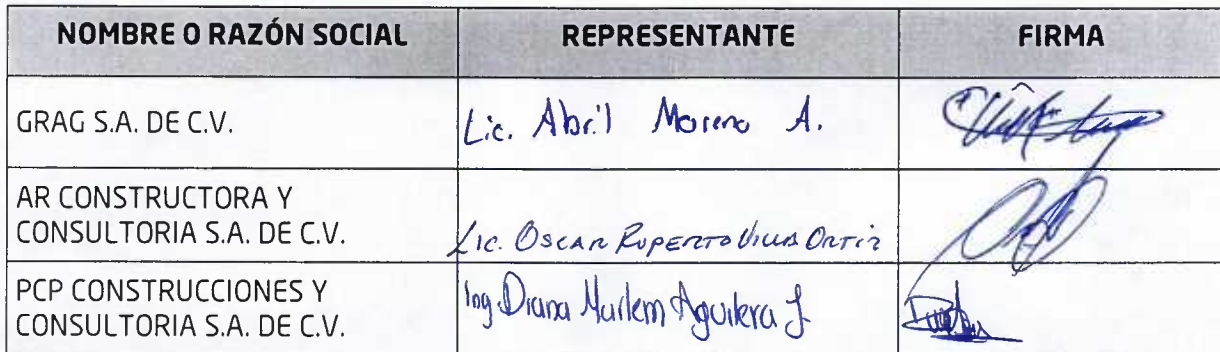 NOMBRE O RAZÓN SOCIAL REPRESENTANTE FIRMA
GRAG S.A. DE C.V. Lic. Abril Moreno A.
AR CONSTRUCTORA Y
CONSULTORIA S.A. DE C.V. Lic. Oscar Ruperto Villa Ortiz
PCP CONSTRUCCIONES Y
CONSULTORIA S.A. DE C.V. Ing Diana Marlem Aguilera J.